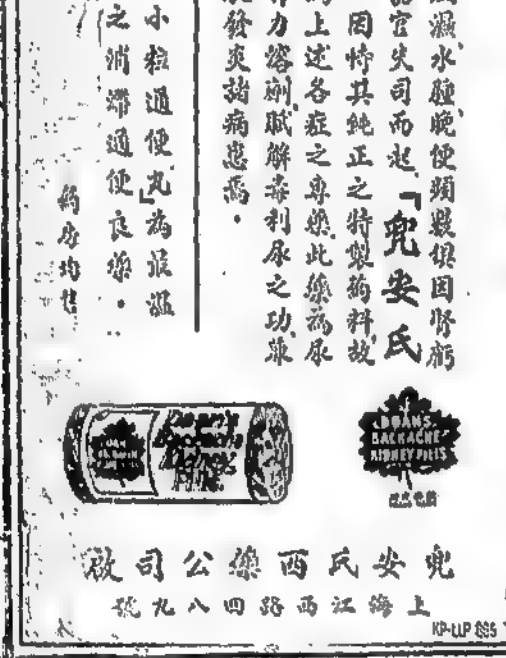 風濕水腫晚便頻數俱因腎虧
器官失司而起「兜安氏
因恃其純正之特製藥料故
上述各症之專藥此藥為尿
力溶劑賦解毒利尿之功兼
發炎諸病患焉。
小粒通便丸」為最溫
之消滯通便良藥。
藥房均售
DOAN'S
BACKACHE
KIDNEY PILLS
兜安氏西藥公司啟
上海江西路四八九號
KP-LLP 885